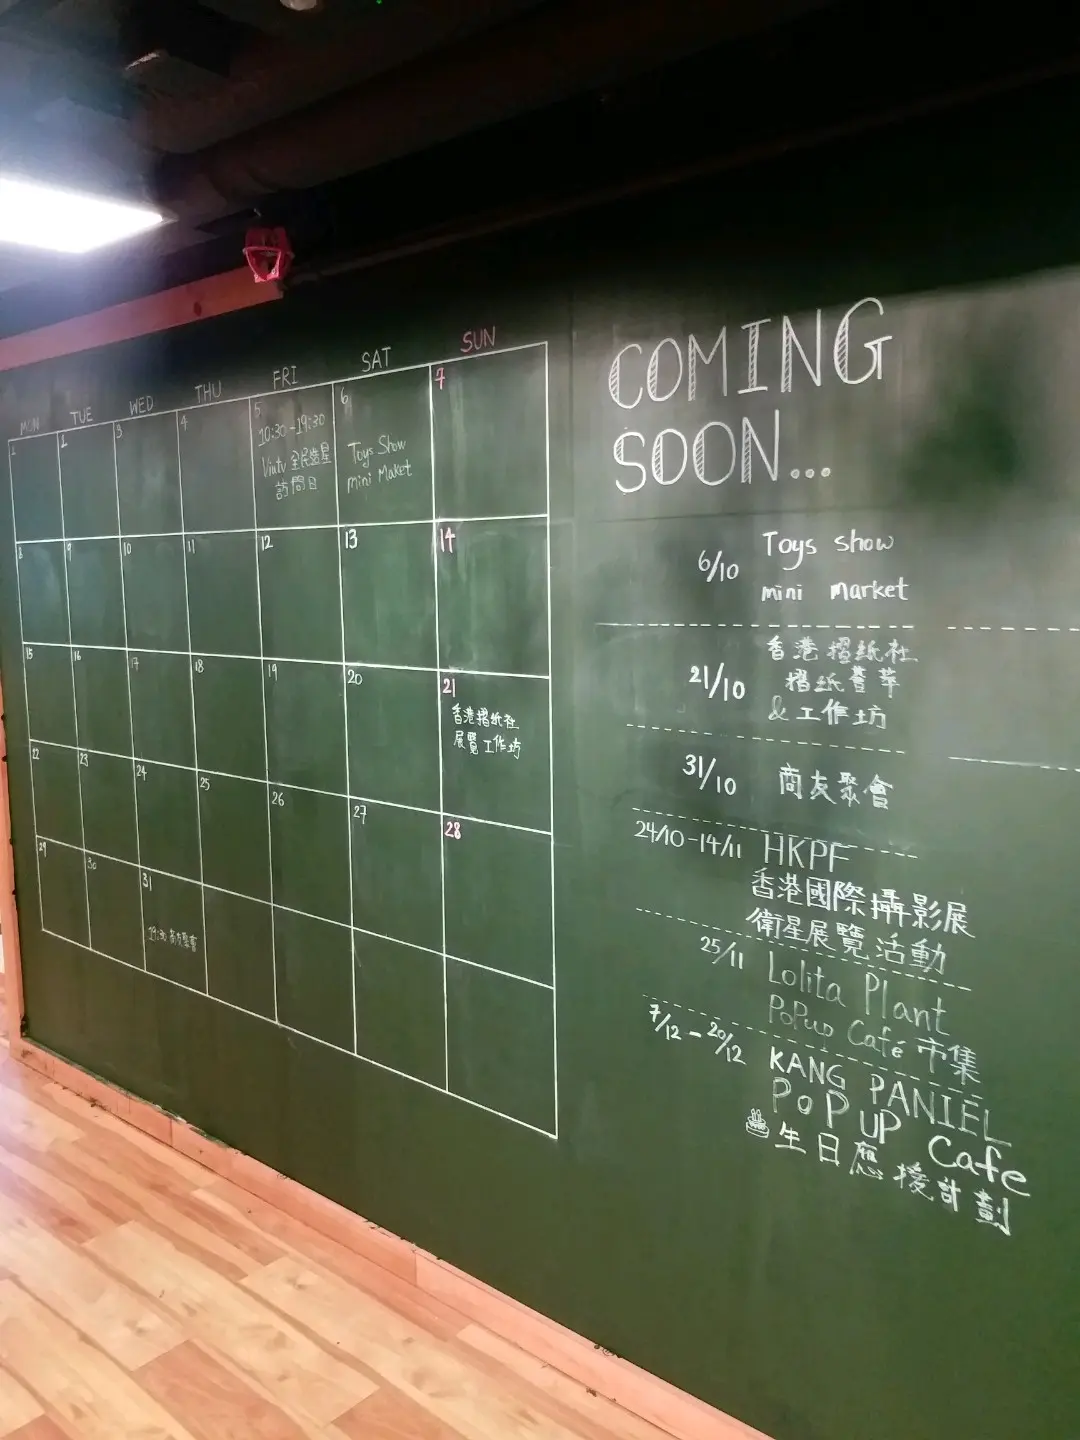 MON TUE WED THU FRI SAT SUN
1 2 3 4 5 6 7
10:30-19:30
Viutv 全民造星
訪問日
Toys Show
mini Maket
8 9 10 11 12 13 14
15 16 17 18 19 20 21
香港摺紙社
展覽工作坊
22 23 24 25 26 27 28
29 30 31
19:30 商友聚會
COMING
SOON...
6/10 Toys show
mini market
21/10 香港摺紙社
摺紙薈萃
& 工作坊
31/10 商友聚會
24/10-14/11 HKPF
香港國際攝影展
衛星展覽活動
25/11 Lolita Plant
PoPup Café 市集
7/12 - 20/12 KANG PANIEL
PoP UP Cafe
生日應援計劃